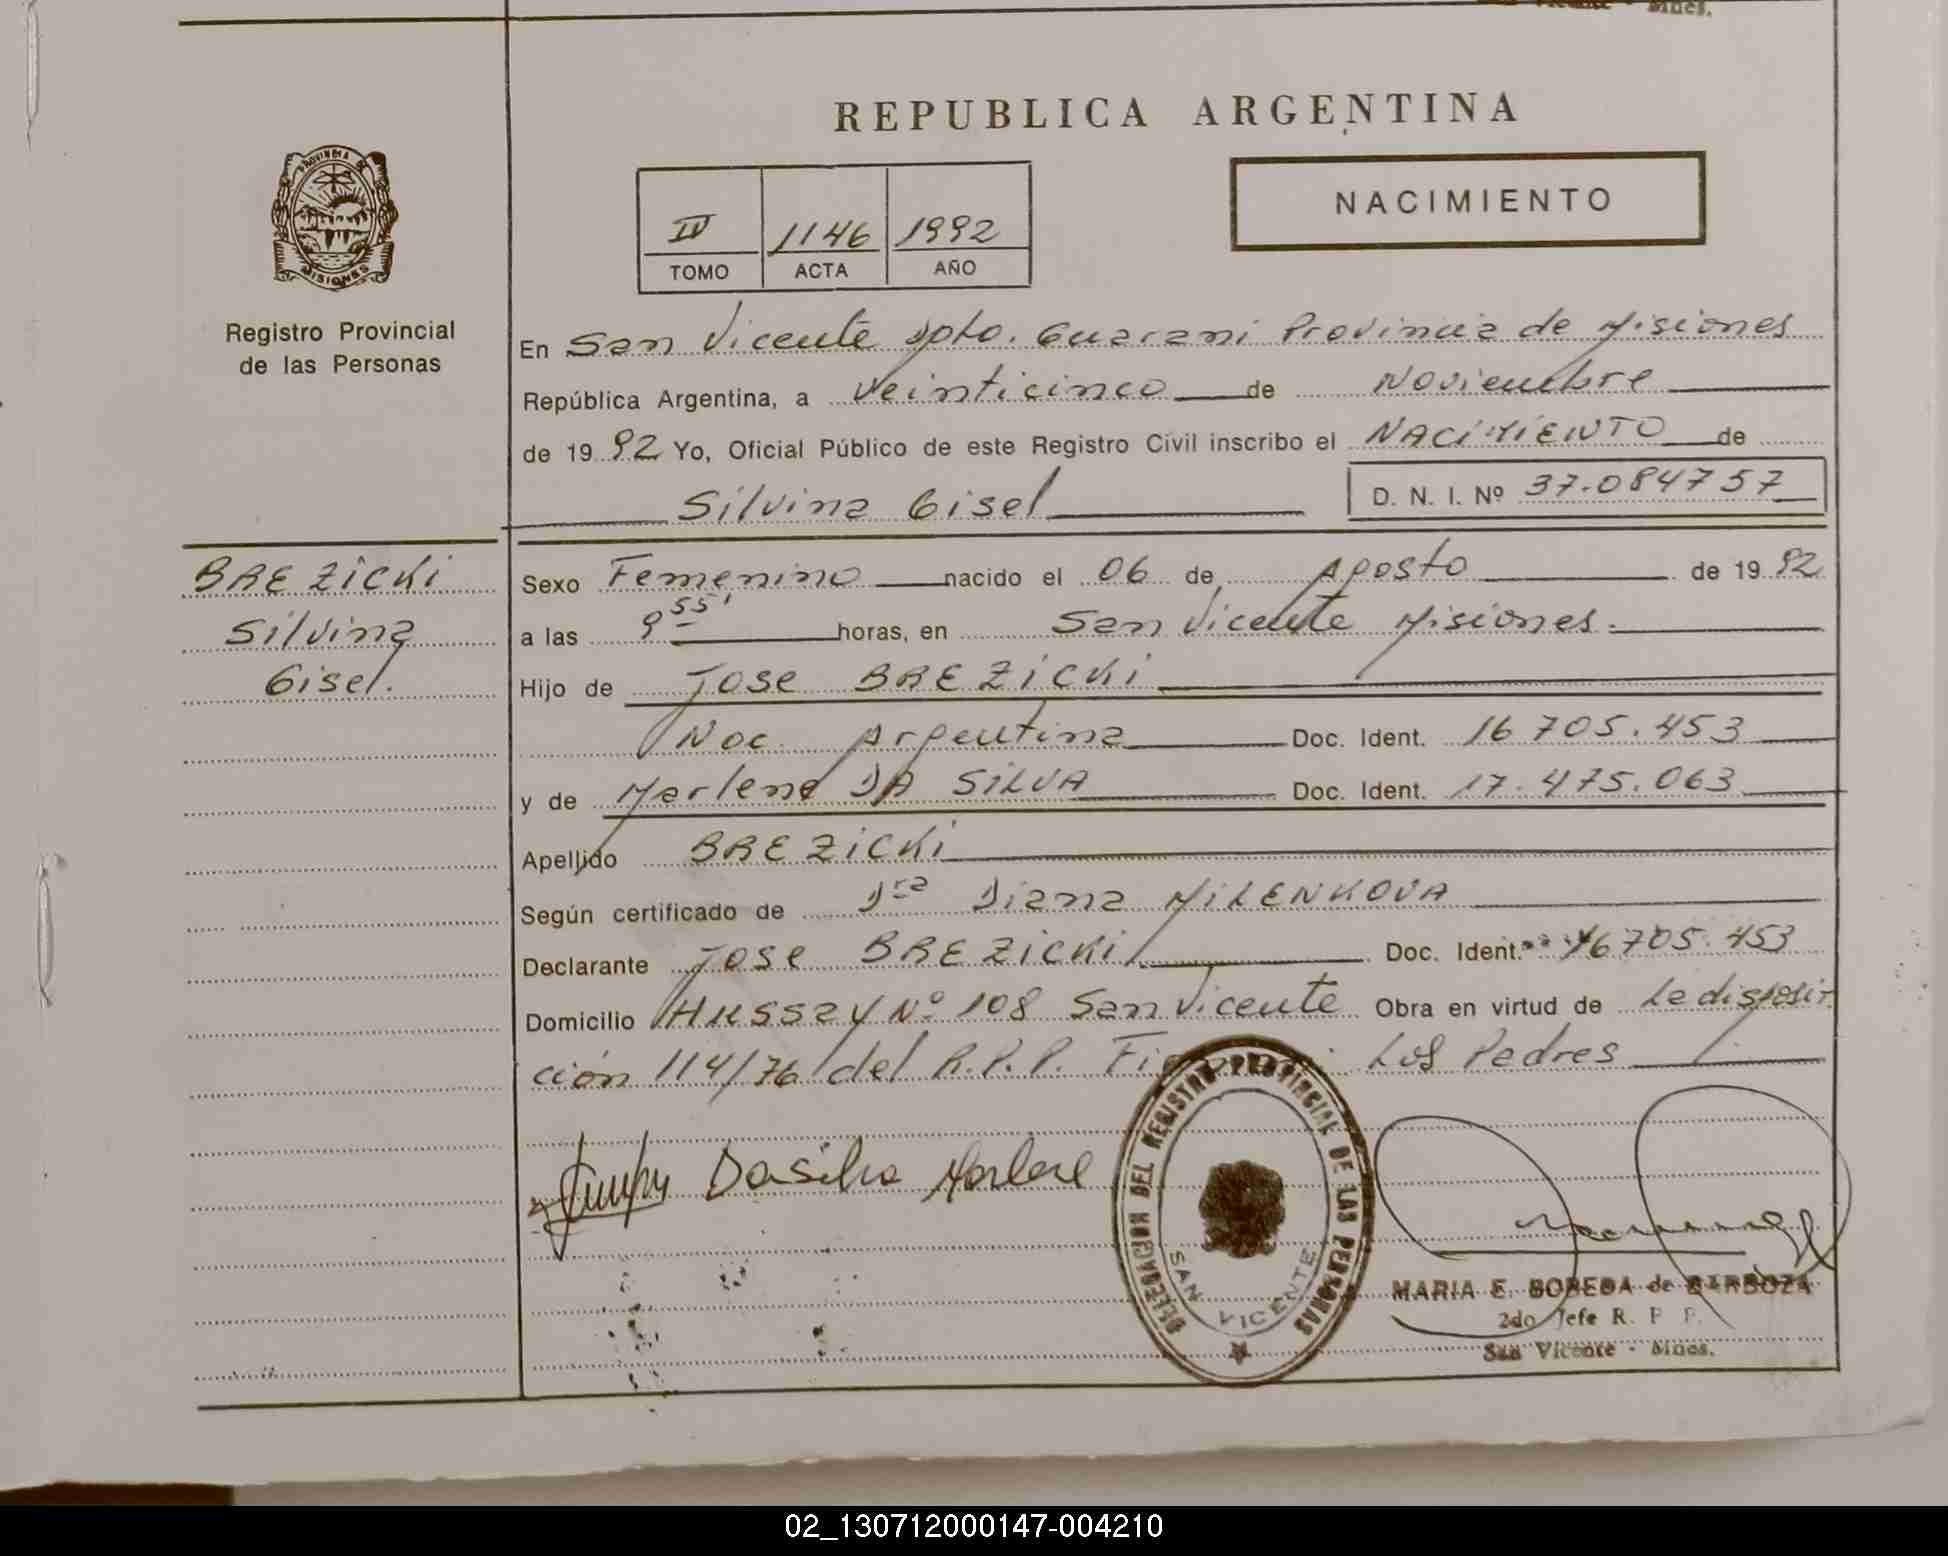 REPUBLICA ARGENTINA
NACIMIENTO
IV 1146 1992
TOMO ACTA AÑO
PROVINCIA DE MISIONES
Registro Provincial
de las Personas
En San Vicente Dpto. Guarani Provincia de Misiones
República Argentina, a veinticinco de Noviembre
de 1992 Yo, Oficial Público de este Registro Civil inscribo el NACIMIENTO de
Silvina Gisel D. N. I. Nº 37.084757
BREZICKI
Silvina
Gisel.
Sexo Femenino nacido el 06 de Agosto de 1992
a las 9 55' horas, en San Vicente Misiones.
Hijo de Jose BREZICKI
Nac. Argentina Doc. Ident. 16 705.453
y de Marlene DA SILVA Doc. Ident. 17.475.063
Apellido BREZICKI
Según certificado de Dra Diana MILENKOVA
Declarante Jose BREZICKI Doc. Ident. 16705.453
Domicilio Nº 108 San Vicente Obra en virtud de La disposi-
ción 114/76 del R.P.P. Los Padres
Dasilva Marlene
DELEGACION DEL REGISTRO PROVINCIAL DE LAS PERSONAS
SAN VICENTE
MARIA E. BOBEDA de BARBOZA
2do Jefe R. P. P.
San Vicente - Mnes.
San Vicente - Mnes.
02_130712000147-004210